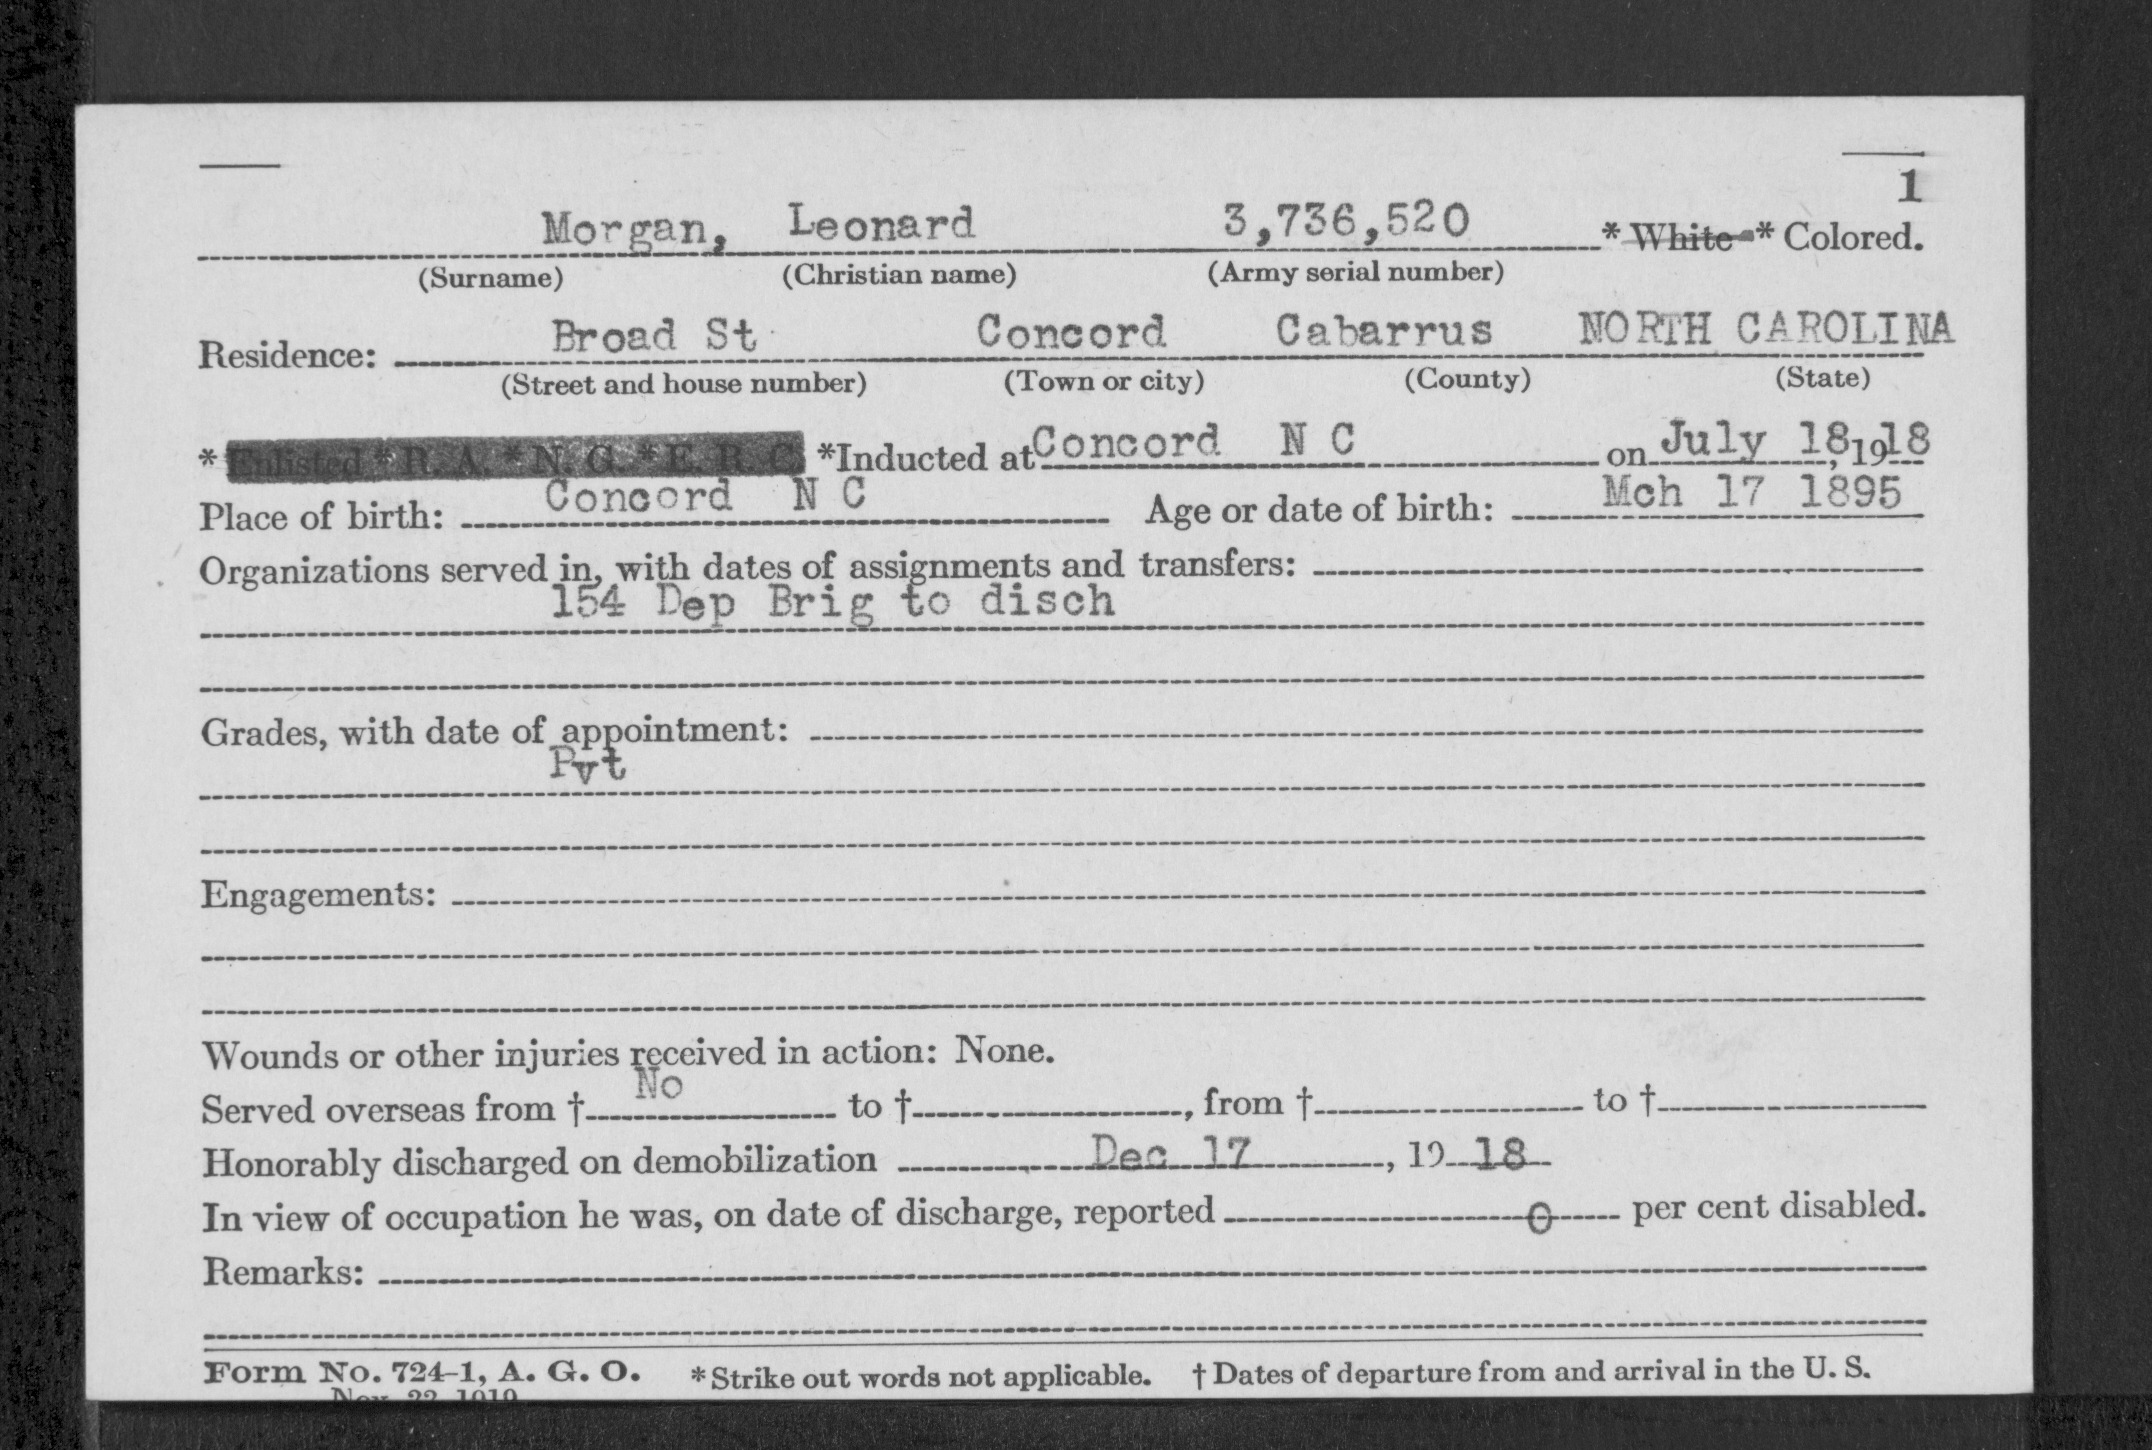 1
Morgan, Leonard 3,736,520 * White * Colored.
(Surname) (Christian name) (Army serial number)
Residence: Broad St Concord Cabarrus NORTH CAROLINA
(Street and house number) (Town or city) (County) (State)
* Enlisted * R. A. * N. G. * E. R. C. *Inducted at Concord N C on July 18, 1918
Place of birth: Concord N C Age or date of birth: Mch 17 1895
Organizations served in, with dates of assignments and transfers:
154 Dep Brig to disch
Grades, with date of appointment:
Pvt
Engagements:
Wounds or other injuries received in action: None.
Served overseas from † No to †, from † to †
Honorably discharged on demobilization Dec 17, 19 18
In view of occupation he was, on date of discharge, reported 0 per cent disabled.
Remarks:
Form No. 724-1, A. G. O. *Strike out words not applicable. † Dates of departure from and arrival in the U. S.
Nov. 22, 1919